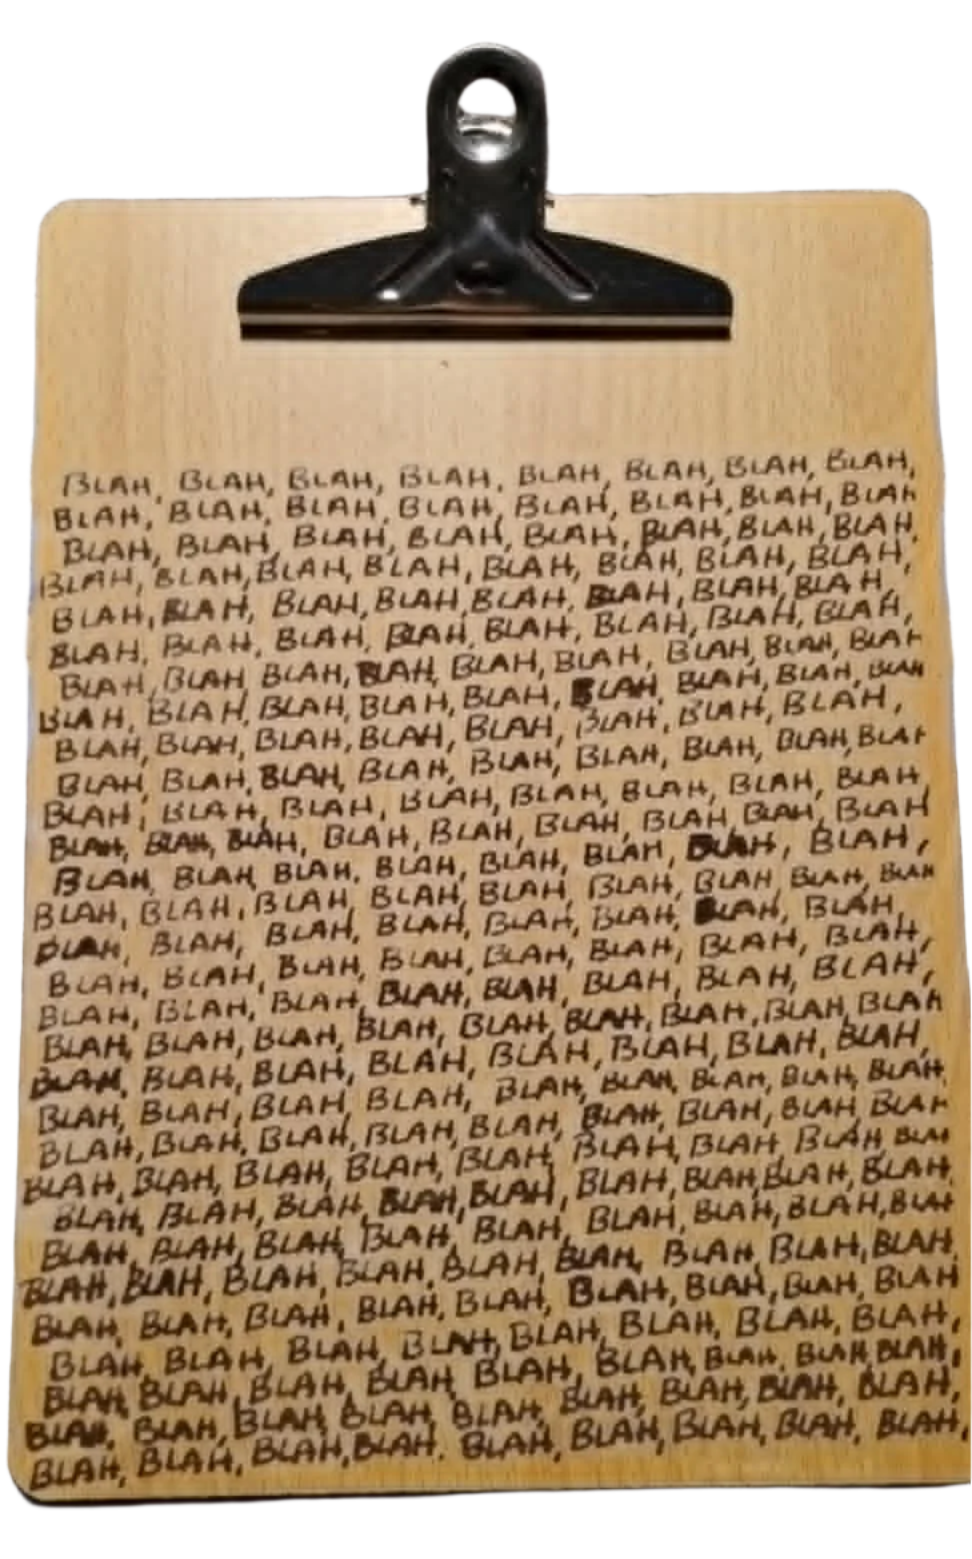 BLAH, BLAH, BLAH, BLAH, BLAH, BLAH, BLAH, BLAH,
BLAH, BLAH, BLAH, BLAH, BLAH, BLAH, BLAH, BLAH
BLAH, BLAH, BLAH, BLAH, BLAH, BLAH, BLAH, BLAH,
BLAH, BLAH, BLAH, BLAH, BLAH, BLAH, BLAH, BLAH,
BLAH, BLAH, BLAH, BLAH, BLAH, BLAH, BLAH, BLAH,
BLAH, BLAH, BLAH, BLAH, BLAH, BLAH, BLAH, BLAH,
BLAH, BLAH, BLAH, BLAH, BLAH, BLAH, BLAH, BLAH, BLAH
BLAH, BLAH, BLAH, BLAH, BLAH, BLAH, BLAH, BLAH, BLAH
BLAH, BLAH, BLAH, BLAH, BLAH, BLAH, BLAH, BLAH,
BLAH, BLAH, BLAH, BLAH, BLAH, BLAH, BLAH, BLAH, BLAH
BLAH, BLAH, BLAH, BLAH, BLAH, BLAH, BLAH, BLAH,
BLAH, BLAH, BLAH, BLAH, BLAH, BLAH, BLAH, BLAH, BLAH
BLAH, BLAH, BLAH, BLAH, BLAH, BLAH, BLAH, BLAH,
BLAH, BLAH, BLAH, BLAH, BLAH, BLAH, BLAH, BLAH, BLAH
BLAH, BLAH, BLAH, BLAH, BLAH, BLAH, BLAH, BLAH,
BLAH, BLAH, BLAH, BLAH, BLAH, BLAH, BLAH, BLAH,
BLAH, BLAH, BLAH, BLAH, BLAH, BLAH, BLAH, BLAH,
BLAH, BLAH, BLAH, BLAH, BLAH, BLAH, BLAH, BLAH, BLAH
BLAH, BLAH, BLAH, BLAH, BLAH, BLAH, BLAH, BLAH,
BLAH, BLAH, BLAH, BLAH, BLAH, BLAH, BLAH, BLAH, BLAH,
BLAH, BLAH, BLAH, BLAH, BLAH, BLAH, BLAH, BLAH, BLAH
BLAH, BLAH, BLAH, BLAH, BLAH, BLAH, BLAH, BLAH, BLAH
BLAH, BLAH, BLAH, BLAH, BLAH, BLAH, BLAH, BLAH, BLAH,
BLAH, BLAH, BLAH, BLAH, BLAH, BLAH, BLAH, BLAH, BLAH
BLAH, BLAH, BLAH, BLAH, BLAH, BLAH, BLAH, BLAH, BLAH,
BLAH, BLAH, BLAH, BLAH, BLAH, BLAH, BLAH, BLAH, BLAH
BLAH, BLAH, BLAH, BLAH, BLAH, BLAH, BLAH, BLAH,
BLAH, BLAH, BLAH, BLAH, BLAH, BLAH, BLAH, BLAH, BLAH,
BLAH, BLAH, BLAH, BLAH, BLAH, BLAH, BLAH, BLAH, BLAH,
BLAH, BLAH, BLAH, BLAH. BLAH, BLAH, BLAH, BLAH, BLAH,